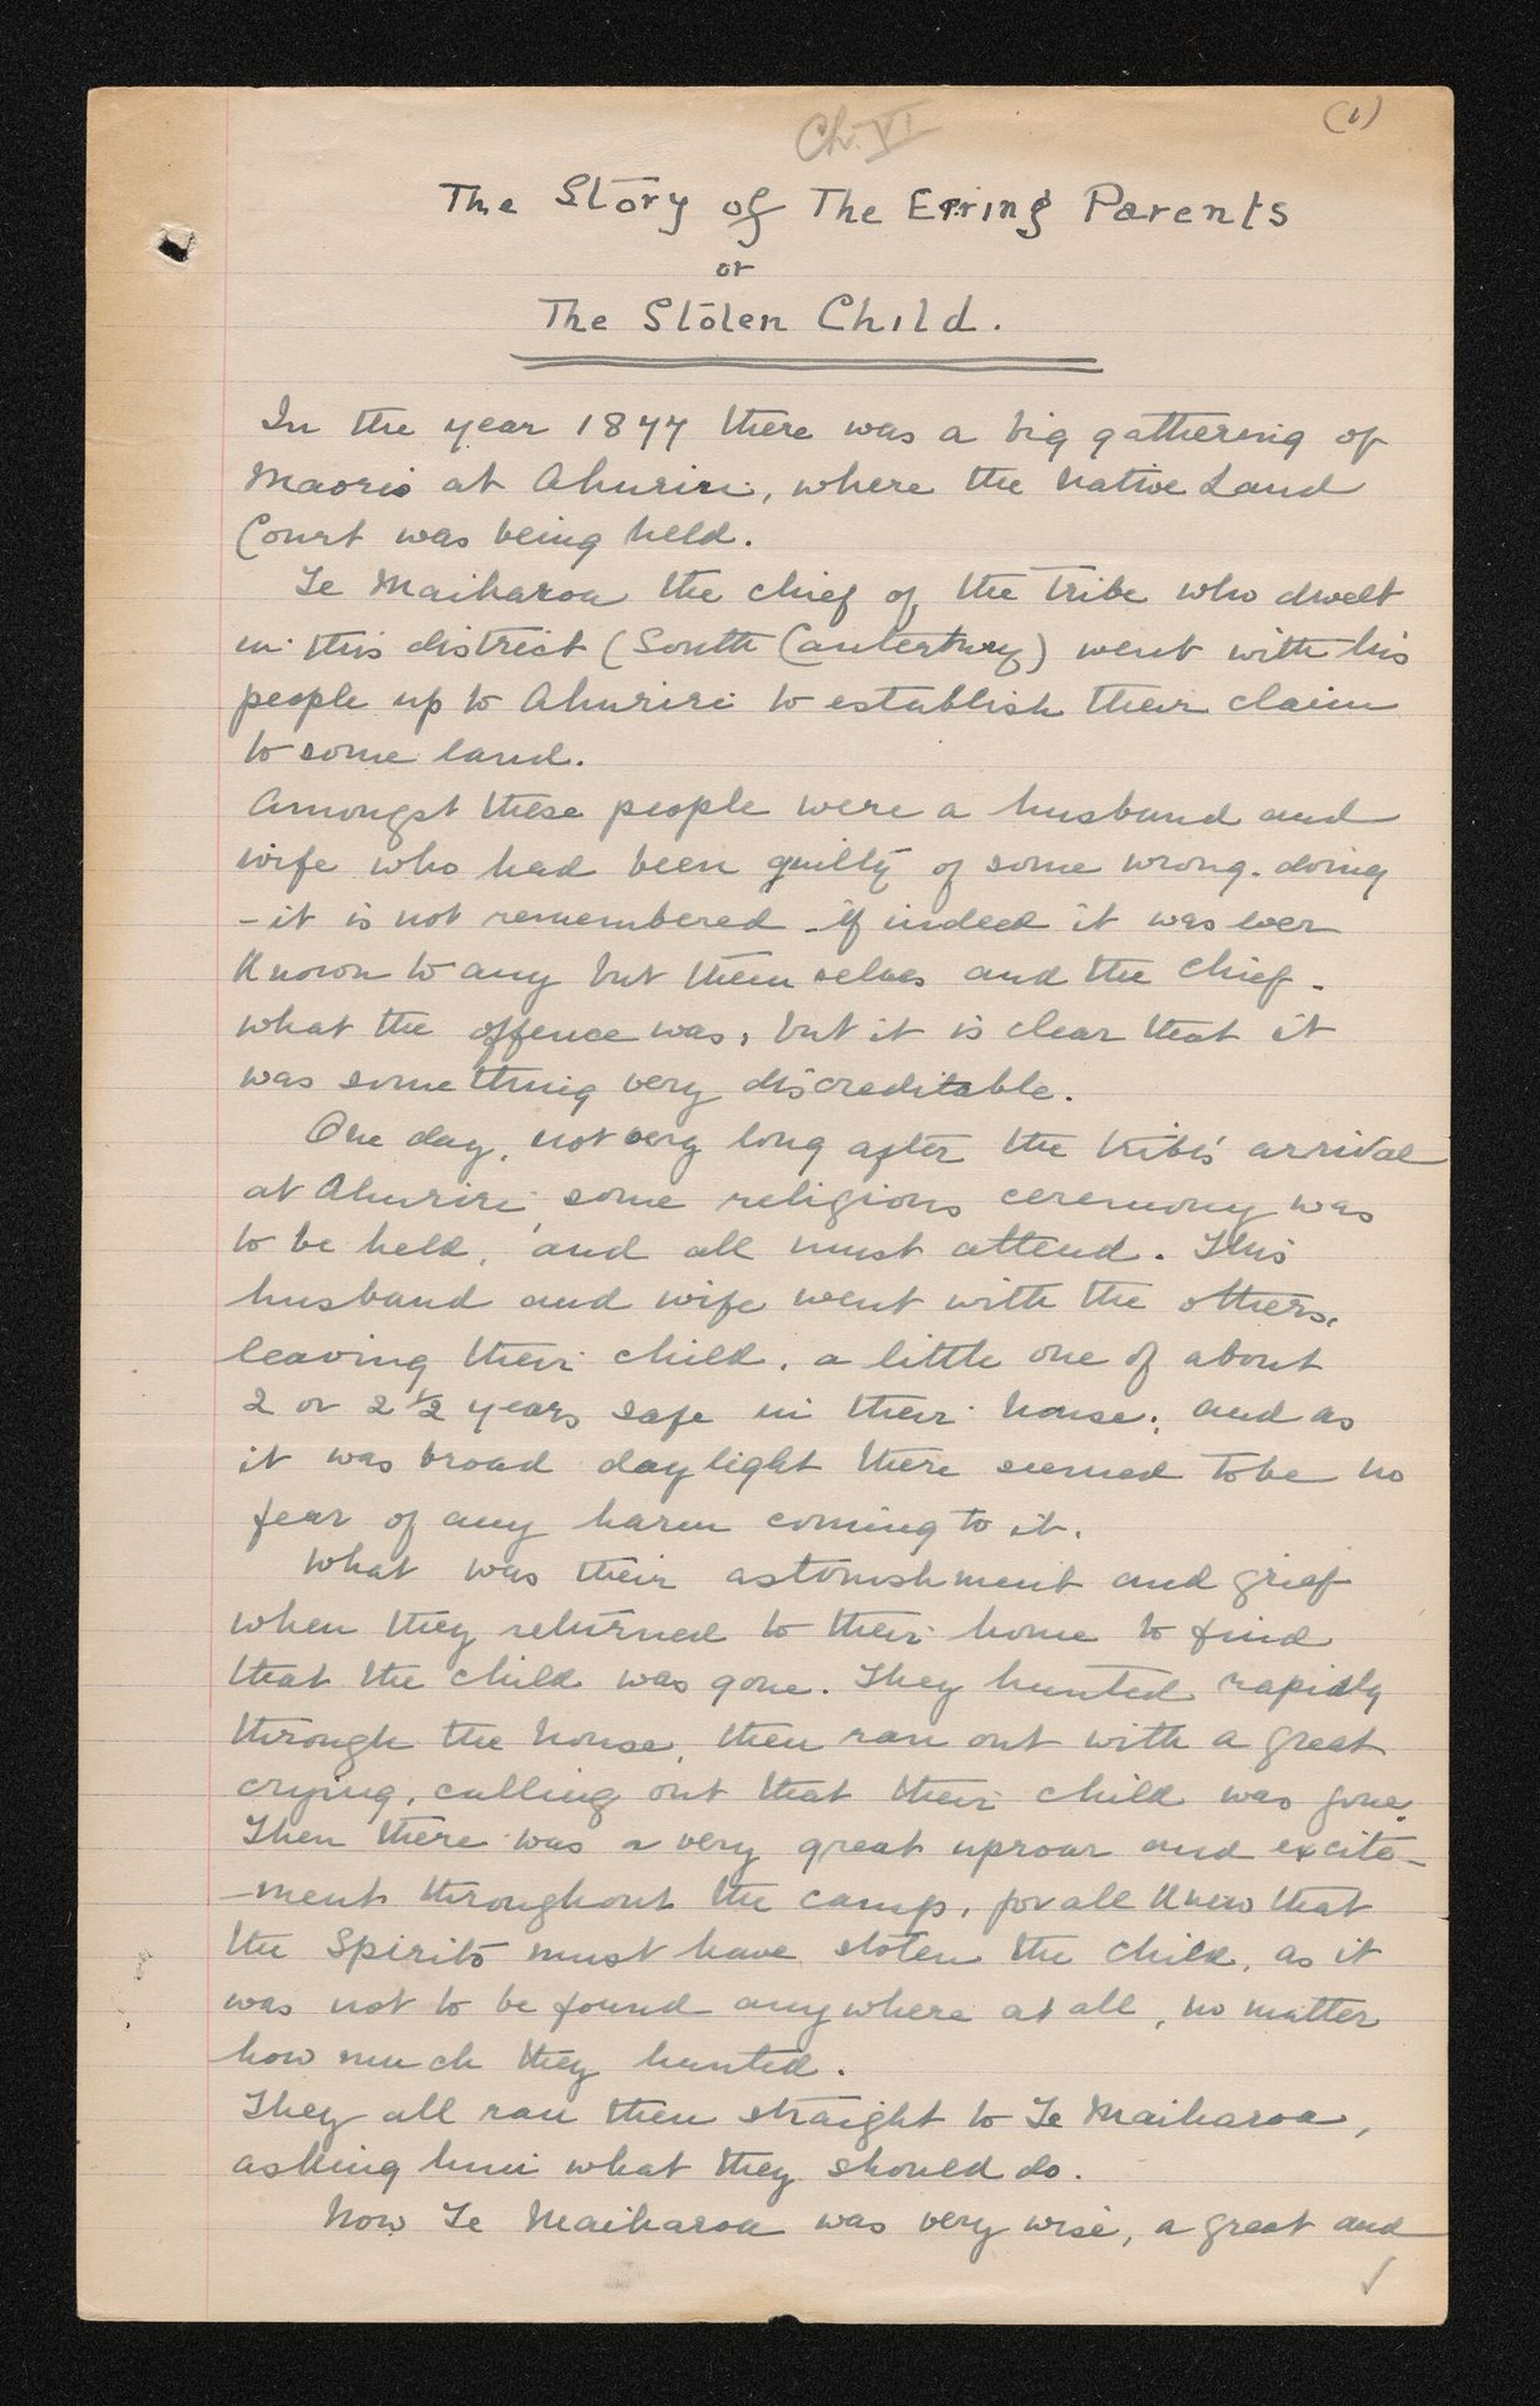 Ch. VI
(1)
The Story of The Erring Parents
or
The Stolen Child.
In the year 1877 there was a big gathering of
Maoris at Ahuriri, where the Native Land
Court was being held.
Te Maiharoa the chief of the tribe who dwelt
in this district (South Canterbury) went with his
people up to Ahuriri to establish their claim
to some land.
Amongst these people were a husband and
wife who had been guilty of some wrong-doing
- it is not remembered - if indeed it was ever
known to any but themselves and the chief -
what the offence was, but it is clear that it
was something very discreditable.
One day, not very long after the tribe's arrival
at Ahuriri, some religious ceremony was
to be held, and all must attend. This
husband and wife went with the others,
leaving their child, a little one of about
2 or 2½ years safe in their house; and as
it was broad daylight there seemed to be no
fear of any harm coming to it.
What was their astonishment and grief
when they returned to their home to find
that the child was gone. They hunted rapidly
through the house, then ran out with a great
crying, calling out that their child was gone.
Then there was a very great uproar and excite-
-ment throughout the camp, for all knew that
the Spirits must have stolen the child, as it
was not to be found anywhere at all, no matter
how much they hunted.
They all ran then straight to Te Maiharoa,
asking him what they should do.
Now Te Maiharoa was very wise, a great and